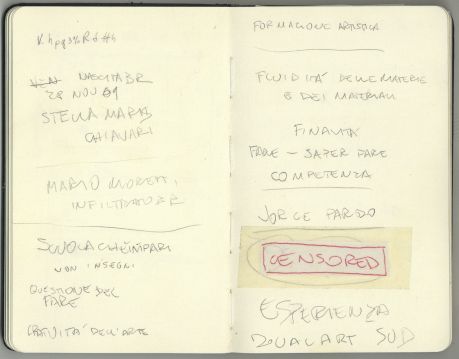 NASCITA BR
28 NOV 09
STELLA MARIS
CHIAVARI
MARIO MORETTI,
SCUOLA CHE IMPARI
NON INSEGNI
QUESTIONE DEL
FARE
GRATUITÀ DELL'ARTE
FORMAZIONE ARTISTICA
FLUIDITÀ DELLE MATERIE
E DEI MATERIALI
FINALITÀ
FARE - SAPER FARE
COMPETENZA
JORGE PARDO
CENSORED
ESPERIENZA
SUD